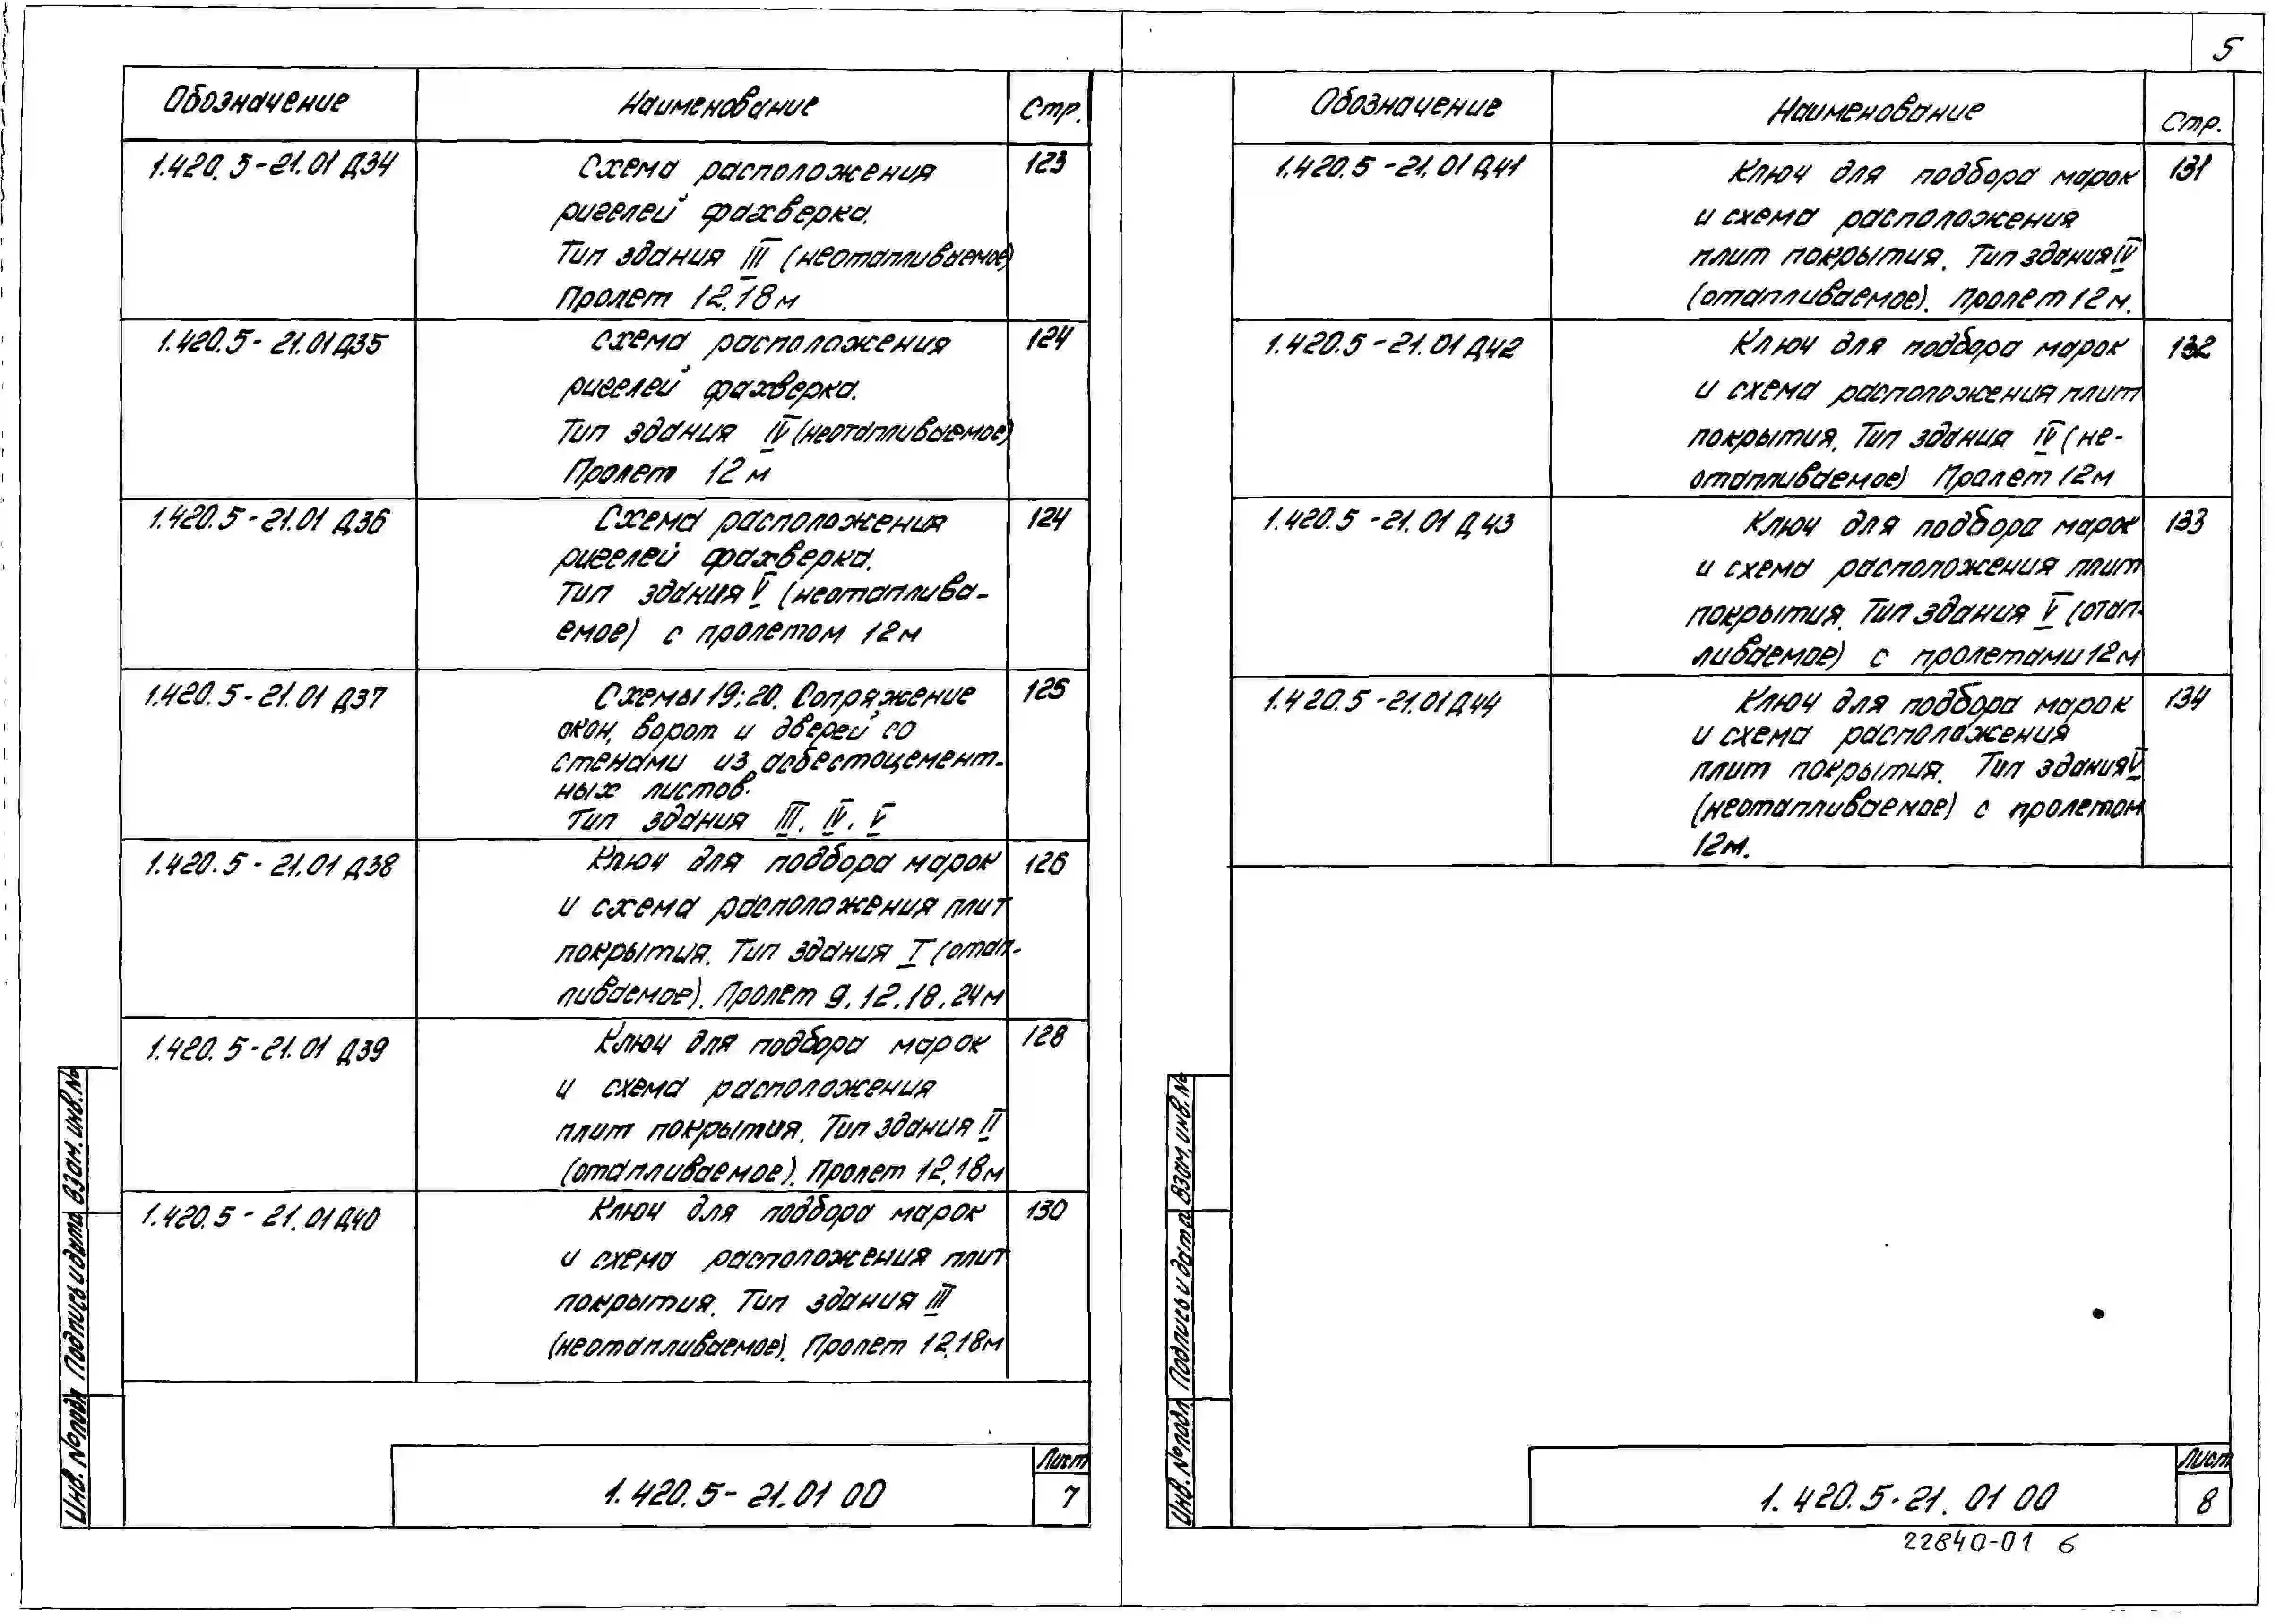 5
Обозначение Наименование Стр.
1.420.5-21.01 Д34 Схема расположения 123
ригелей фахверка.
Тип здания III (неотапливаемое)
Пролет 12,18м
1.420.5-21.01Д35 Схема расположения 124
ригелей фахверка.
Тип здания IV (неотапливаемое)
Пролет 12м
1.420.5-21.01 Д36 Схема расположения 124
ригелей фахверка.
Тип здания V (неотаплива-
емое) с пролетом 12м
1.420.5-21.01 Д37 Схемы 19; 20. Сопряжение 125
окон, ворот и дверей со
стенами из асбестоцемент-
ных листов.
Тип здания III, IV, V
1.420.5-21.01 Д38 Ключ для подбора марок 126
и схема расположения плит
покрытия. Тип здания I (отап-
ливаемое). Пролет 9,12,18,24м
1.420.5-21.01 Д39 Ключ для подбора марок 128
и схема расположения
плит покрытия. Тип здания II
(отапливаемое). Пролет 12,18м
1.420.5-21.01Д40 Ключ для подбора марок 130
и схема расположения плит
покрытия. Тип здания III
(неотапливаемое). Пролет 12,18м
Инв. № подл. Подпись и дата Взам. инв. №
1.420.5-21.01 00
Лист
7
Обозначение Наименование Стр.
1.420.5-21.01 Д41 Ключ для подбора марок 131
и схема расположения
плит покрытия. Тип здания IV
(отапливаемое). Пролет 12м.
1.420.5-21.01 Д42 Ключ для подбора марок 132
и схема расположения плит
покрытия. Тип здания IV (не-
отапливаемое) Пролет 12м
1.420.5-21.01 Д43 Ключ для подбора марок 133
и схема расположения плит
покрытия. Тип здания V (отап-
ливаемое) с пролетами 12м
1.420.5-21.01Д44 Ключ для подбора марок 134
и схема расположения
плит покрытия. Тип здания V
(неотапливаемое) с пролетом
12м.
Инв. № подл. Подпись и дата Взам. инв. №
1.420.5-21.01 00
Лист
8
22840-01 6